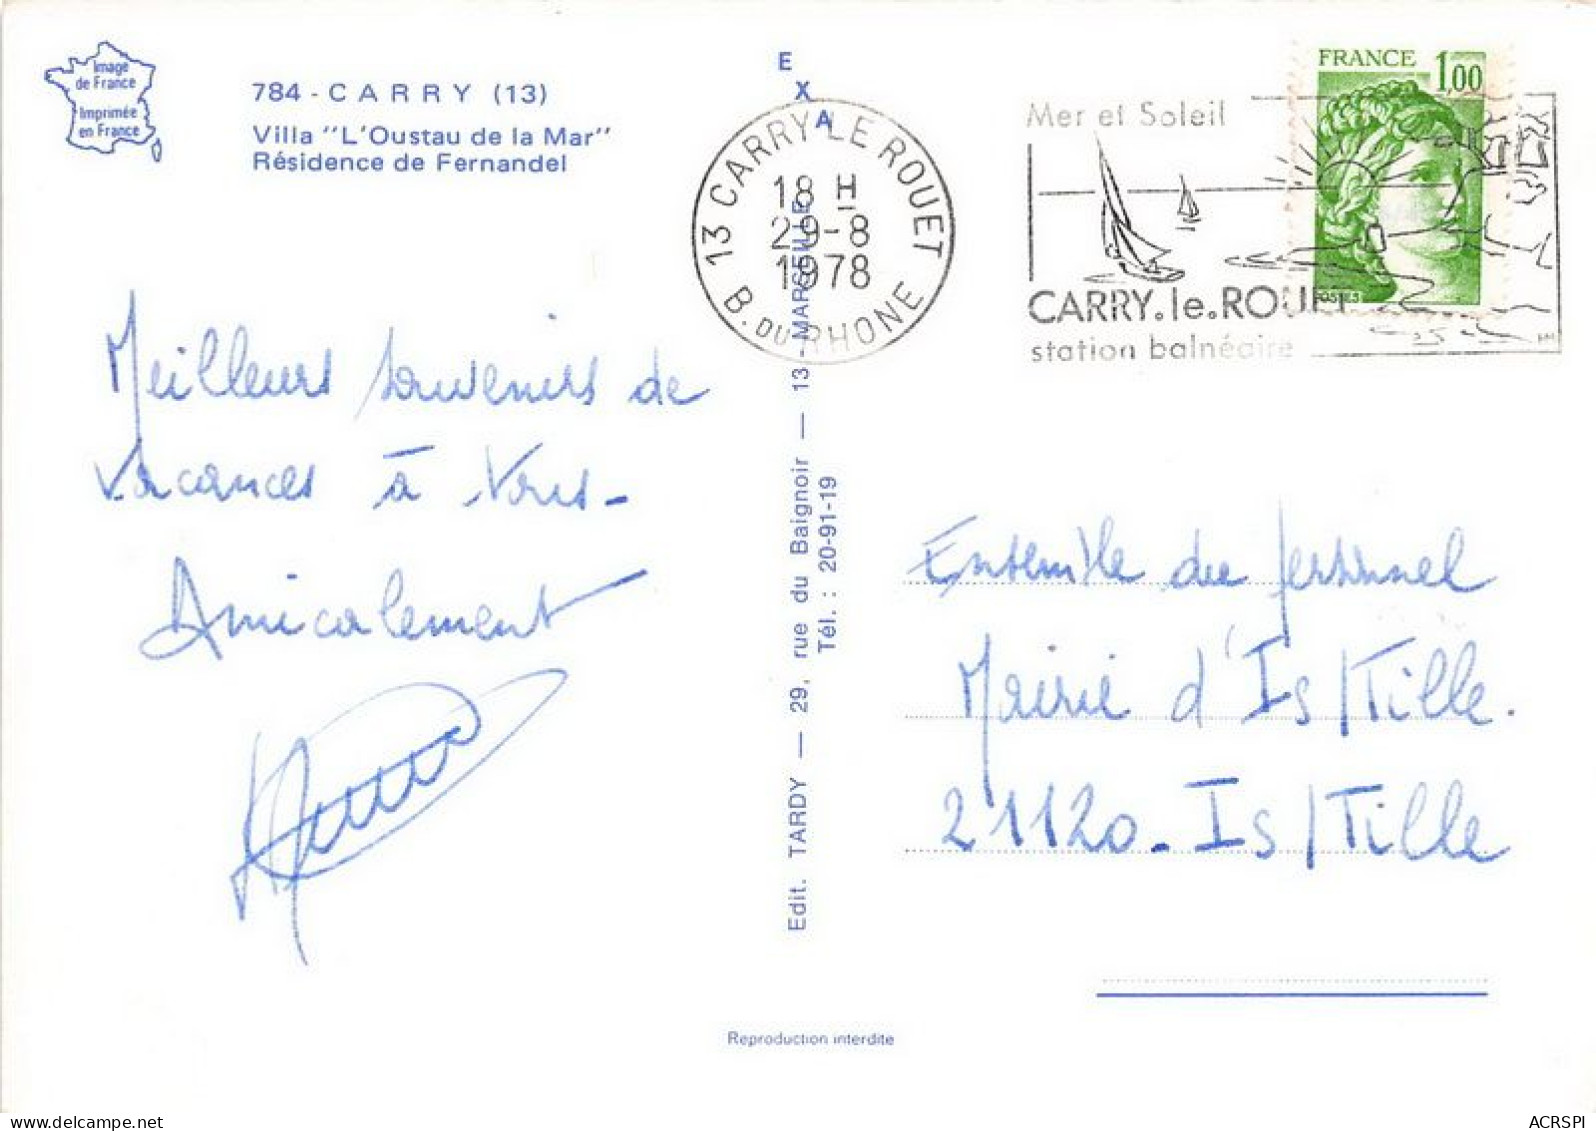 Image
de France
Imprimée
en France
784 - CARRY (13)
Villa "L'Oustau de la Mar"
Résidence de Fernandel
EXA
13 CARRY LE ROUET
18 H
29-8
1978
B. DU RHONE
Mer et Soleil
CARRY.le.ROUET
station balnéaire
FRANCE 1,00
POSTES
Meilleurs souvenirs de
vacances à Vous -
Amicalement
Edit. TARDY — 29, rue du Baignoir — 13 - MARSEILLE
Tél. : 20-91-19
Ensemble du personnel
Mairie d'Is/Tille.
21120 - Is/Tille
Reproduction interdite
www.delcampe.net
ACRSPI